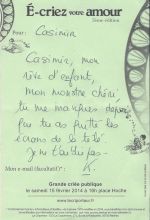 É-criez votre amour
2ème édition
Pour : Casimir
Casimir, mon
rêve d'enfant,
mon monstre chéri
tu me manques depuis
que tu as quitté les
écrans de la télé
Je t'
Mon e-mail (facultatif) :
Grande criée publique
le samedi 15 février 2014 à 16h place Hoche
www.lacriporteur.fr